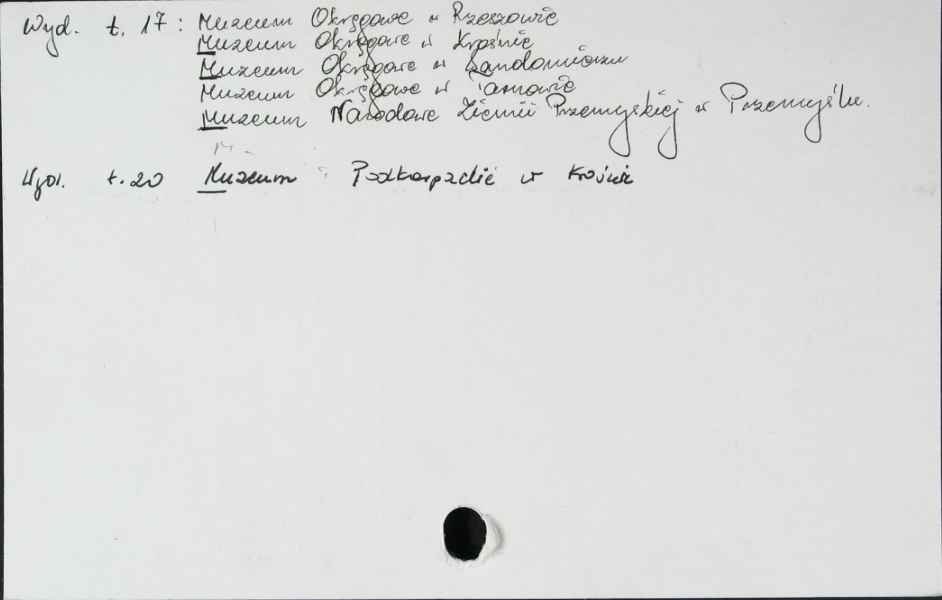 Wyd. t. 17: Muzeum Okręgowe w Rzeszowie
Muzeum Okręgowe w Krośnie
Muzeum Okręgowe w Sandomierzu
Muzeum Okręgowe w Tarnowie
Muzeum Narodowe Ziemii Przemyskiej w Przemyślu.
Wyd. t. 20 Muzeum Podkarpackie w Krośnie